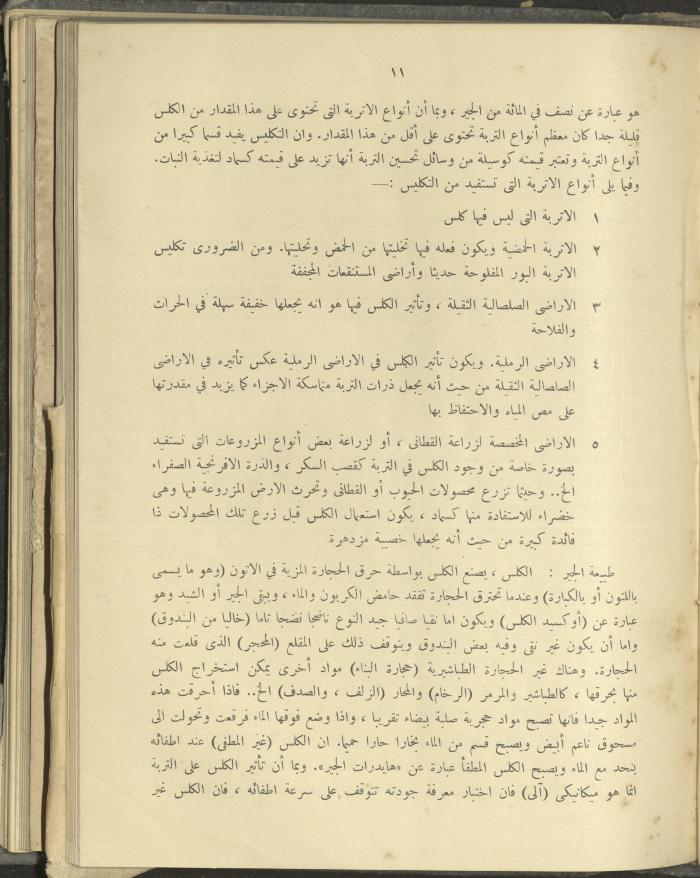 ١١
هو عبارة عن نصف في المائة من الجير ، وبما أن أنواع الاتربة التى تحتوى على هذا المقدار من الكلس
قليلة جدا كان معظم أنواع التربة تحتوى على أقل من هذا المقدار. وان التكليس يفيد قسما كبيرا من
أنواع التربة وتعتبر قيمته كوسيلة من وسائل تحسين التربة أنها تزيد على قيمته كسماد لتغذية النبات.
وفيما يلى أنواع الاتربة التى تستفيد من التكليس :—
١ الاتربة التى ليس فيها كلس
٢ الاتربة الحمضية ويكون فعله فيها تخليتها من الحمض وتحليتها. ومن الضرورى تكليس
الاتربة البور المفلوحة حديثا وأراضى المستنقعات المجففة
٣ الاراضى الصلصالية الثقيلة ، وتأثير الكلس فيها هو انه يجعلها خفيفة سهلة في الحراث
والفلاحة
٤ الاراضى الرملية. ويكون تأثير الكلس في الاراضى الرملية عكس تأثيره في الاراضى
الصلصالية الثقيلة من حيث أنه يجعل ذرات التربة متماسكة الاجزاء كما يزيد في مقدرتها
على مص المياه والاحتفاظ بها
٥ الاراضى المخصصة لزراعة القطانى ، أو لزراعة بعض أنواع المزروعات التى تستفيد
بصورة خاصة من وجود الكلس في التربة كقصب السكر ، والذرة الافرنجية الصفراء
الخ.. وحيثما تزرع محصولات الحبوب أو القطانى وتحرث الارض المزروعة فيها وهى
خضراء للاستفادة منها كسماد ، يكون استعمال الكلس قبل زرع تلك المحصولات ذا
فائدة كبيرة من حيث أنه يجعلها خصيبة مزدهرة
طبيعة الجير : الكلس ، يصنع الكلس بواسطة حرق الحجارة المزية في الاتون (وهو ما يسمى
باللتون أو بالكبارة) وعندما تحترق الحجارة تفقد حامض الكربون والماء ، ويبقى الجير أو الشيد وهو
عبارة عن (أوكسيد الكلس) ويكون اما نقيا صافيا جيد النوع ناضجا نضجا تاما (خاليا من البندوق)
واما أن يكون غير نقى وفيه بعض البندوق ويتوقف ذلك على المقلع (المحجر) الذى قلعت منه
الحجارة. وهناك غير الحجارة الطباشيرية (حجارة البناء) مواد أخرى يمكن استخراج الكلس
منها بحرقها ، كالطباشير والمرمر (الرخام) والمحار (الزلف ، والصدف) الخ.. فاذا أحرقت هذه
المواد جيدا فانها تصبح مواد حجرية صلبة بيضاء تقريبا ، واذا وضع فوقها الماء فرقعت وتحولت الى
مسحوق ناعم أبيض ويصبح قسم من الماء بخارا حارا حميا. ان الكلس (غير المطفى) عند اطفائه
يتحد مع الماء ويصبح الكلس المطفأ عبارة عن «هايدرات الجير». وبما أن تأثير الكلس على التربة
انما هو ميكانيكى (آلى) فان اختبار معرفة جودته تتوقف على سرعة اطفائه ، فان الكلس غير